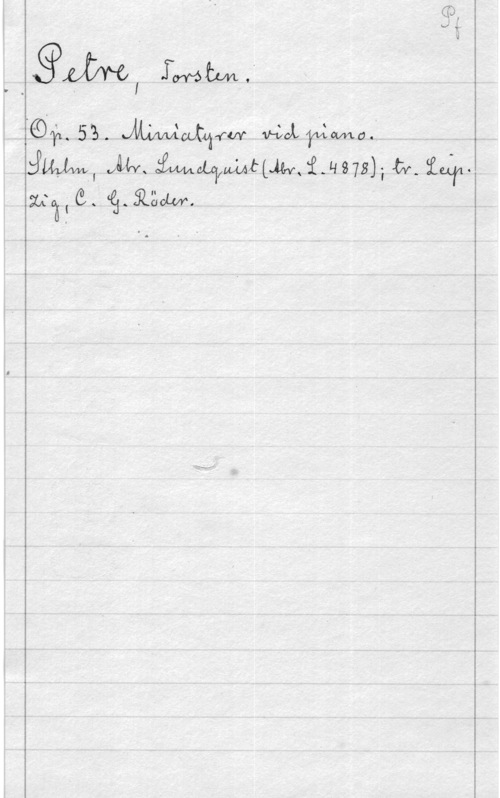 Pf
Petre, Torsten.
Op. 53. Miniatyrer vid piano.
Sthlm, Abr. Lundquist (Abr. L. 4878); tr. Leip-
zig, C. G. Röder.